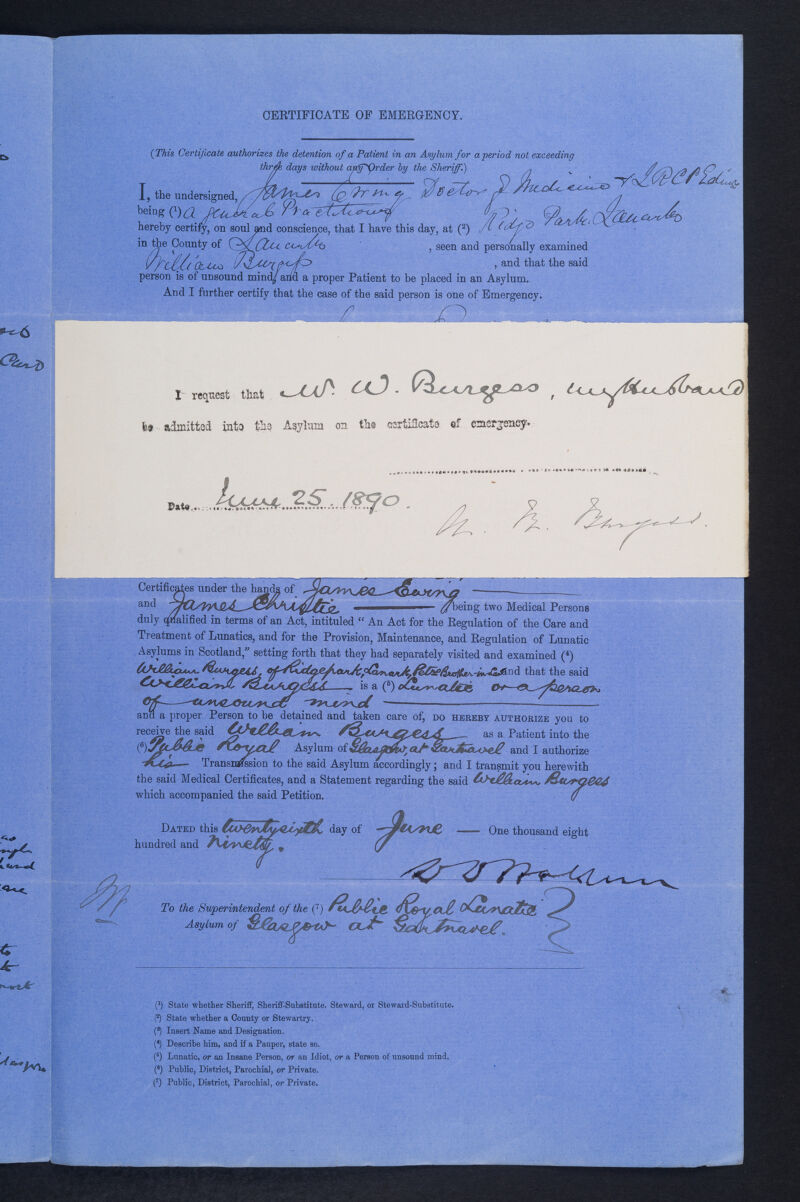 CERTIFICATE OF EMERGENCY.
(This Certificate authorizes the detention of a Patient in an Asylum for a period not exceeding
three days without any Order by the Sheriff.)
I, the undersigned, James Ewing Doctor of Medicine & LRCP Edin
being (¹) a general Practitioner
hereby certify, on soul and conscience, that I have this day, at (²) Ridge Park, Lanark
in the County of Lanark , seen and personally examined
William Burgess , and that the said
person is of unsound mind, and a proper Patient to be placed in an Asylum.
And I further certify that the case of the said person is one of Emergency.
I request that Mr. W. Burgess, my Husband
be admitted into the Asylum on the certificate of emergency.
Date June 25. 1890.
Burgess.
Certificates under the hands of James Ewing
and James Christie being two Medical Persons
duly qualified in terms of an Act, intituled “ An Act for the Regulation of the Care and
Treatment of Lunatics, and for the Provision, Maintenance, and Regulation of Lunatic
Asylums in Scotland,” setting forth that they had separately visited and examined (⁴)
William Burgess, of Ridgepark, Lanark, Brother-in-Law and that the said
William Burgess is a (⁵) Lunatic or a person
of unsound mind
and a proper Person to be detained and taken care of, DO HEREBY AUTHORIZE you to
receive the said William Burgess as a Patient into the
(⁶) Public Royal Asylum of Glasgow, at Gartnavel and I authorize
his Transmission to the said Asylum accordingly; and I transmit you herewith
the said Medical Certificates, and a Statement regarding the said William Burgess
which accompanied the said Petition.
DATED this twentysixth day of June One thousand eight
hundred and Ninety.
To the Superintendent of the (⁷) Public Royal Lunatic
Asylum of Glasgow at Gartnavel.
(¹) State whether Sheriff, Sheriff-Substitute. Steward, or Steward-Substitute.
(²) State whether a County or Stewartry.
(³) Insert Name and Designation.
(⁴) Describe him, and if a Pauper, state so.
(⁵) Lunatic, or an Insane Person, or an Idiot, or a Person of unsound mind.
(⁶) Public, District, Parochial, or Private.
(⁷) Public, District, Parochial, or Private.